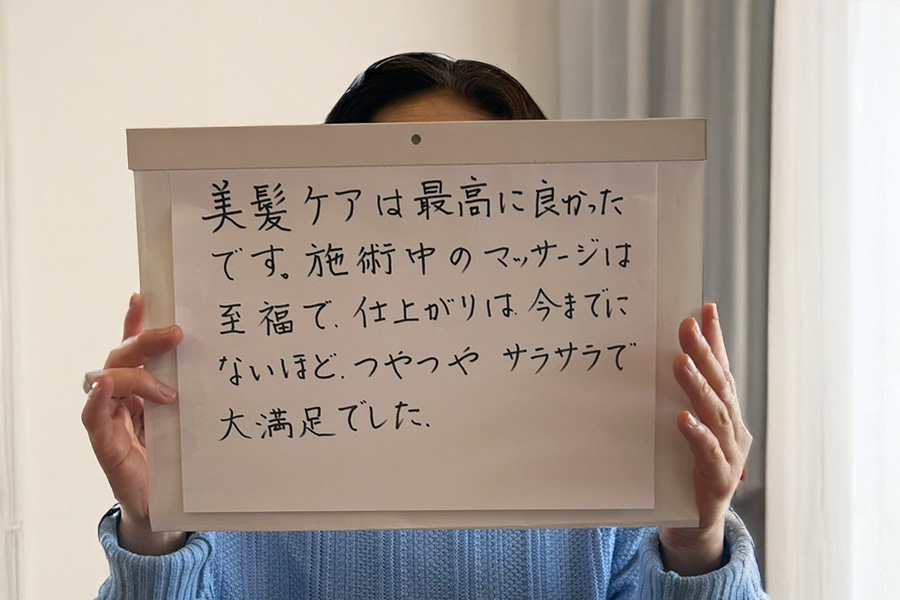 美髪ケアは最高に良かった
です。施術中のマッサージは
至福で、仕上がりは、今までに
ないほど、つやつや サラサラで
大満足でした、